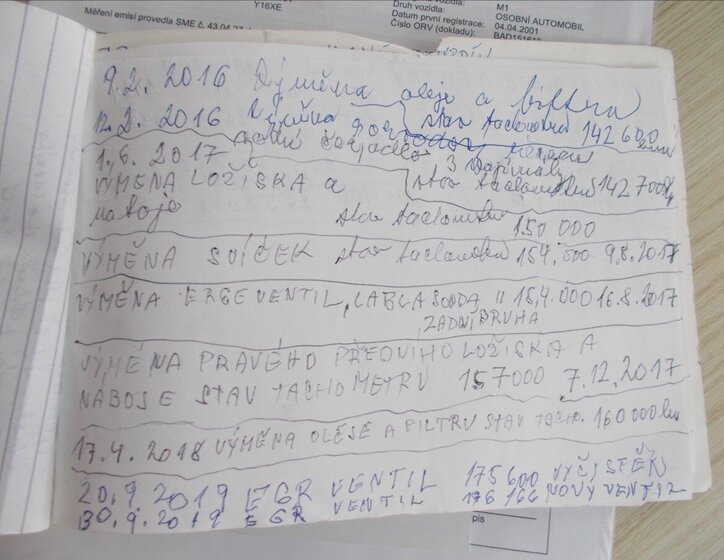 Y16XE
Měření emisí provedla SME č. 43.04.27
Druh vozidla:
M1
OSOBNÍ AUTOMOBIL
Datum první registrace:
04.04.2001
Číslo ORV (dokladu):
9.2. 2016 Výměna oleje a
12.2. 2016 Výměna stav tachometru 142 600
1.6. 2017
VÝMĚNA LOŽISKA a stav 142 700
stav 150 000
VÝMĚNA SVÍČEK stav 154.000 9.8.2017
VÝMĚNA ERGEVENTIL, LABLA SONDA 11 154.000 16.8.2017
ZADNÍ DRUHA
VÝMĚNA PRAVÉHO PŘEDNIHO LOŽISKA A
NABOSE STAV TACHOMETRU 157000 7.12.2017
17.4. 2018 VÝMĚNA OLESE A FILTRU STAV TACH. 160 000 km
20.9 2019 EGR VENTIL 175 600 VYČISTĚN
30.9.2019 EGR VENTIL 176 166 NOVÝ VENTIL
pis